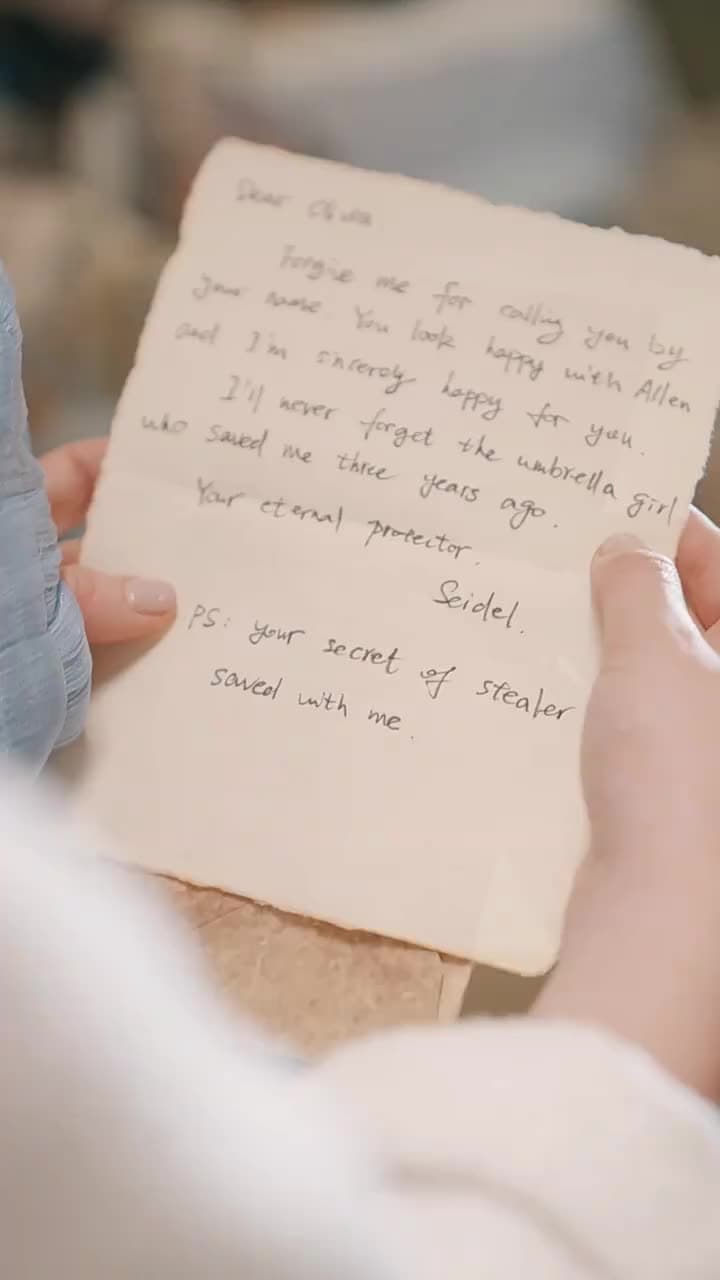 Dear Olivia
Forgive me for calling you by
your name. You look happy with Allen
and I'm sincerely happy for you.
I'll never forget the umbrella girl
who saved me three years ago.
Your eternal protector.
Seidel.
PS: your secret of stealer
saved with me.